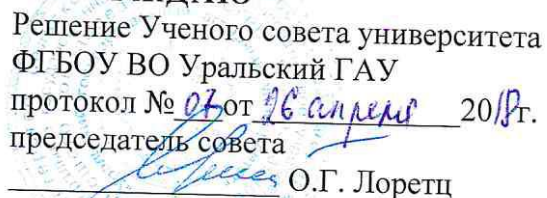 Решение Ученого совета университета
ФГБОУ ВО Уральский ГАУ
протокол № 07 от 26 апреля 2018г.
председатель совета
О.Г. Лоретц